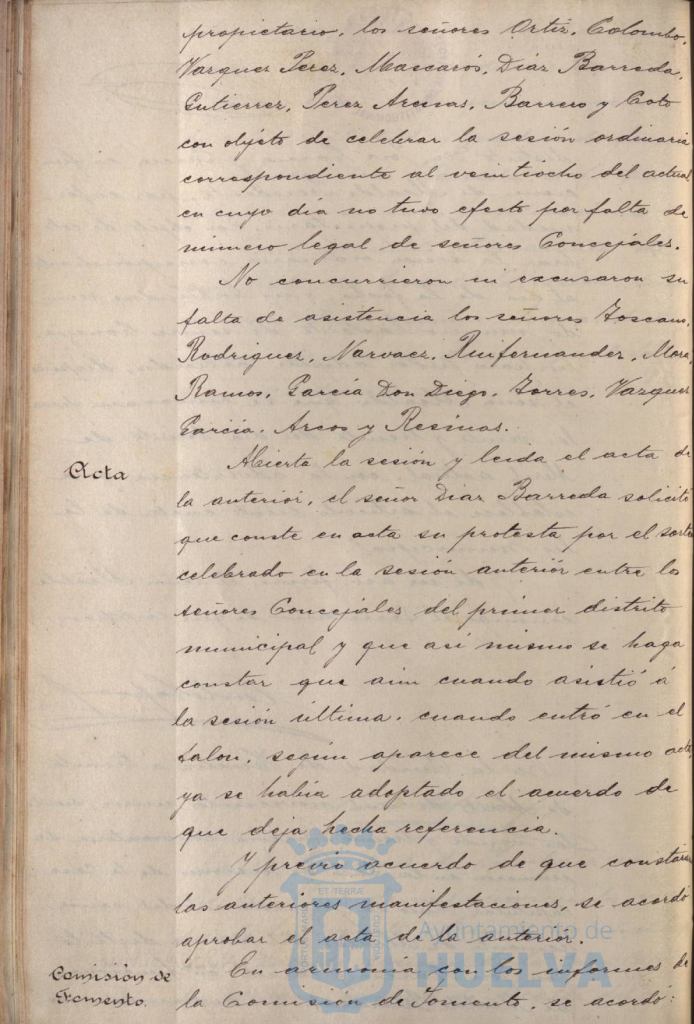 propietario, los señores Ortiz, Colombo,
Vazquez Perez, Mascarós, Diaz Barreda,
Gutierrez, Perez Arenas, Barrero y Coto
con objeto de celebrar la sesión ordinaria
correspondiente al veintiocho del actual
en cuyo dia no tuvo efecto por falta de
número legal de señores Concejales.
No concurrieron ni excusaron su
falta de asistencia los señores Toscano,
Rodriguez, Narvaez, Ruifernandez, Mora,
Ramos, García Don Diego, Torres, Vazquez
García, Arcos y Resinas.
Acta
Abierta la sesión y leida el acta de
la anterior, el señor Diaz Barreda solicitó
que conste en acta su protesta por el sorteo
celebrado en la sesión anterior entre los
señores Concejales del primer distrito
municipal y que asi mismo se haga
constar que aun cuando asistió á
la sesión última, cuando entró en el
Salon, según aparece del mismo acta,
ya se habia adoptado el acuerdo de
que deja hecha referencia.
Y prévio acuerdo de que constaran
las anteriores manifestaciones, se acordó
aprobar el acta de la anterior.
Comisión de
Fomento.
En armonía con los informes de
la Comisión de Fomento, se acordó:
Ayuntamiento de
HUELVA